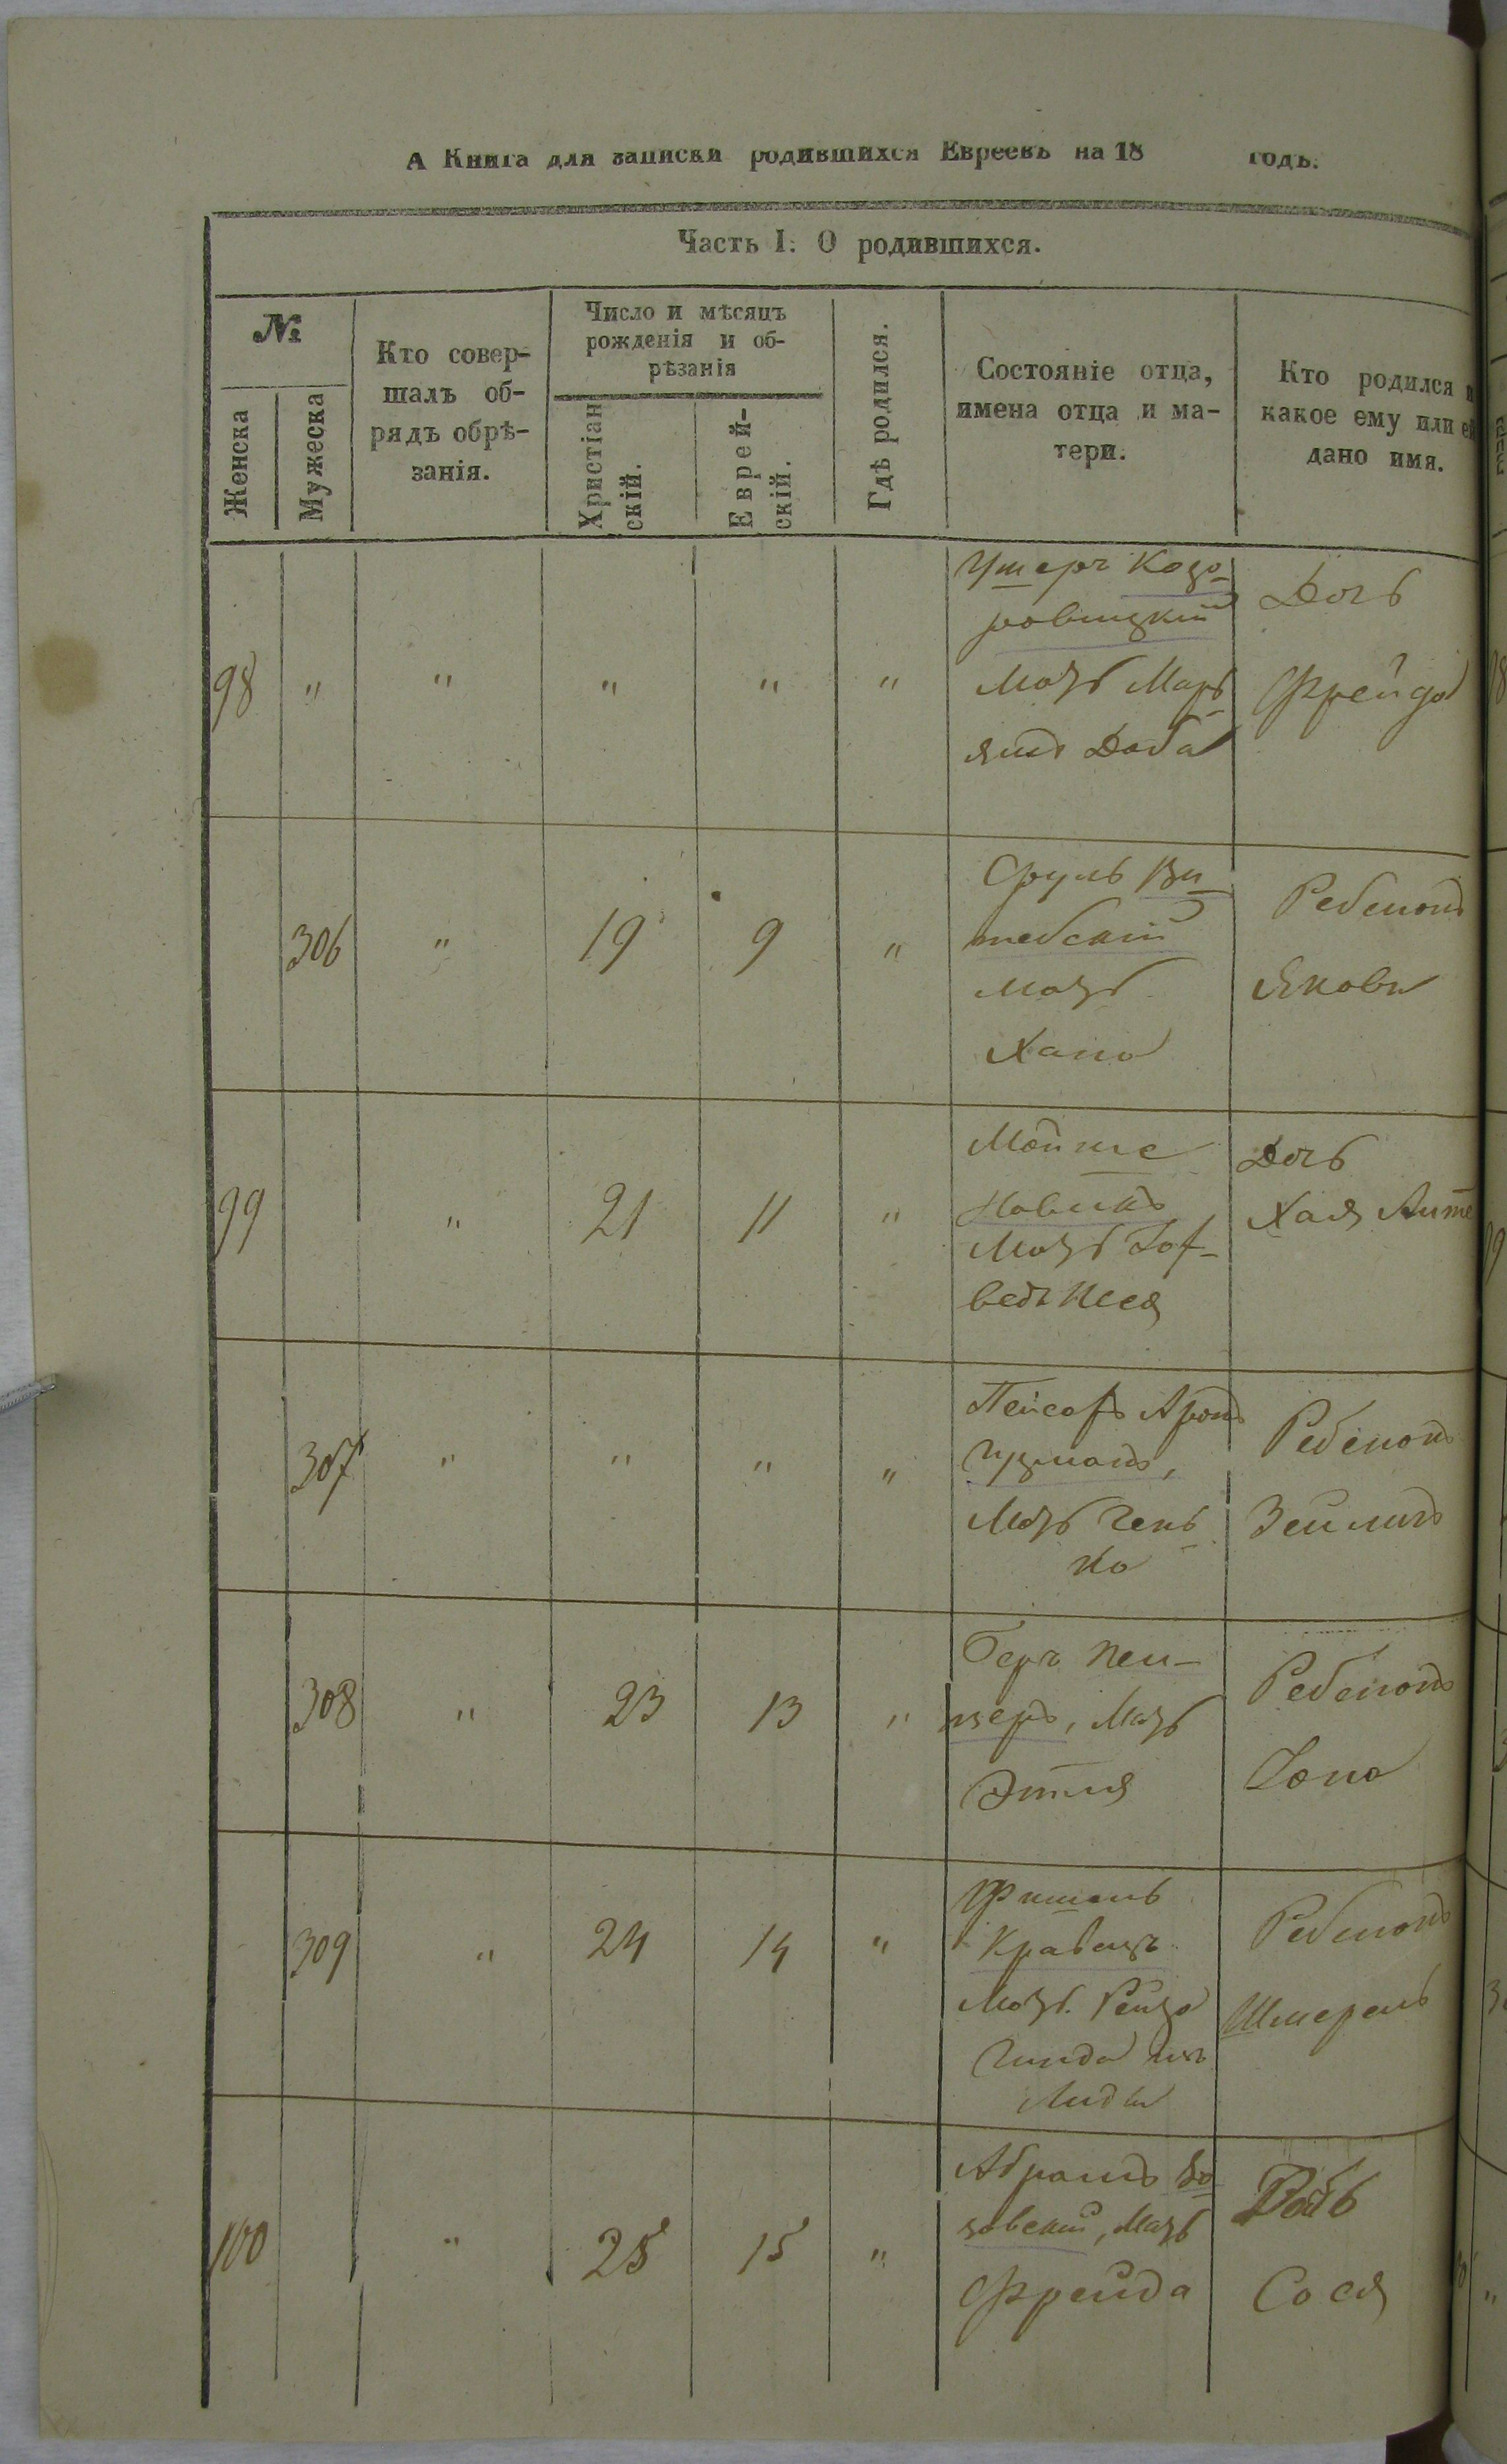 А Книга для записки родившихся Евреевъ на 18 годъ.
Часть I. О родившихся.
№
Женска
Мужеска
Кто совер-
шалъ об-
рядъ обрѣ-
занія.
Число и мѣсяцъ
рожденія и об-
рѣзанія
Христіан
скій.
Еврей-
скій.
Гдѣ родился.
Состояніе отца,
имена отца и ма-
тери.
Кто родился и
какое ему или ей
дано имя.
98 " " " " "
Ушеръ Козо-
ровицкій
Мать Марь
яша Доба
Дочь
Фрейда
306 " 19 9 "
Сруль Ви
тебскій
Мать
Хана
Ребенокъ
Яковъ
99 " 21 11 "
Мойше
Новикъ
Мать
Песя
Дочь
Хая
307 " " " "
Пейсахъ Аронъ
Гузманъ,
Мать Гень
ка
Ребенокъ
Зейликъ
308 " 23 13 "
Беръ Пей-
зеръ, Мать
Этля
Ребенокъ
Іона
309 " 24 14 "
Фишель
Кравецъ
Мать Рейза
Гинда изъ
Лиды
Ребенокъ
Шмерель
100 " 25 15 "
Абрамъ
зовскій, Мать
Фрейда
Дочь
Сося